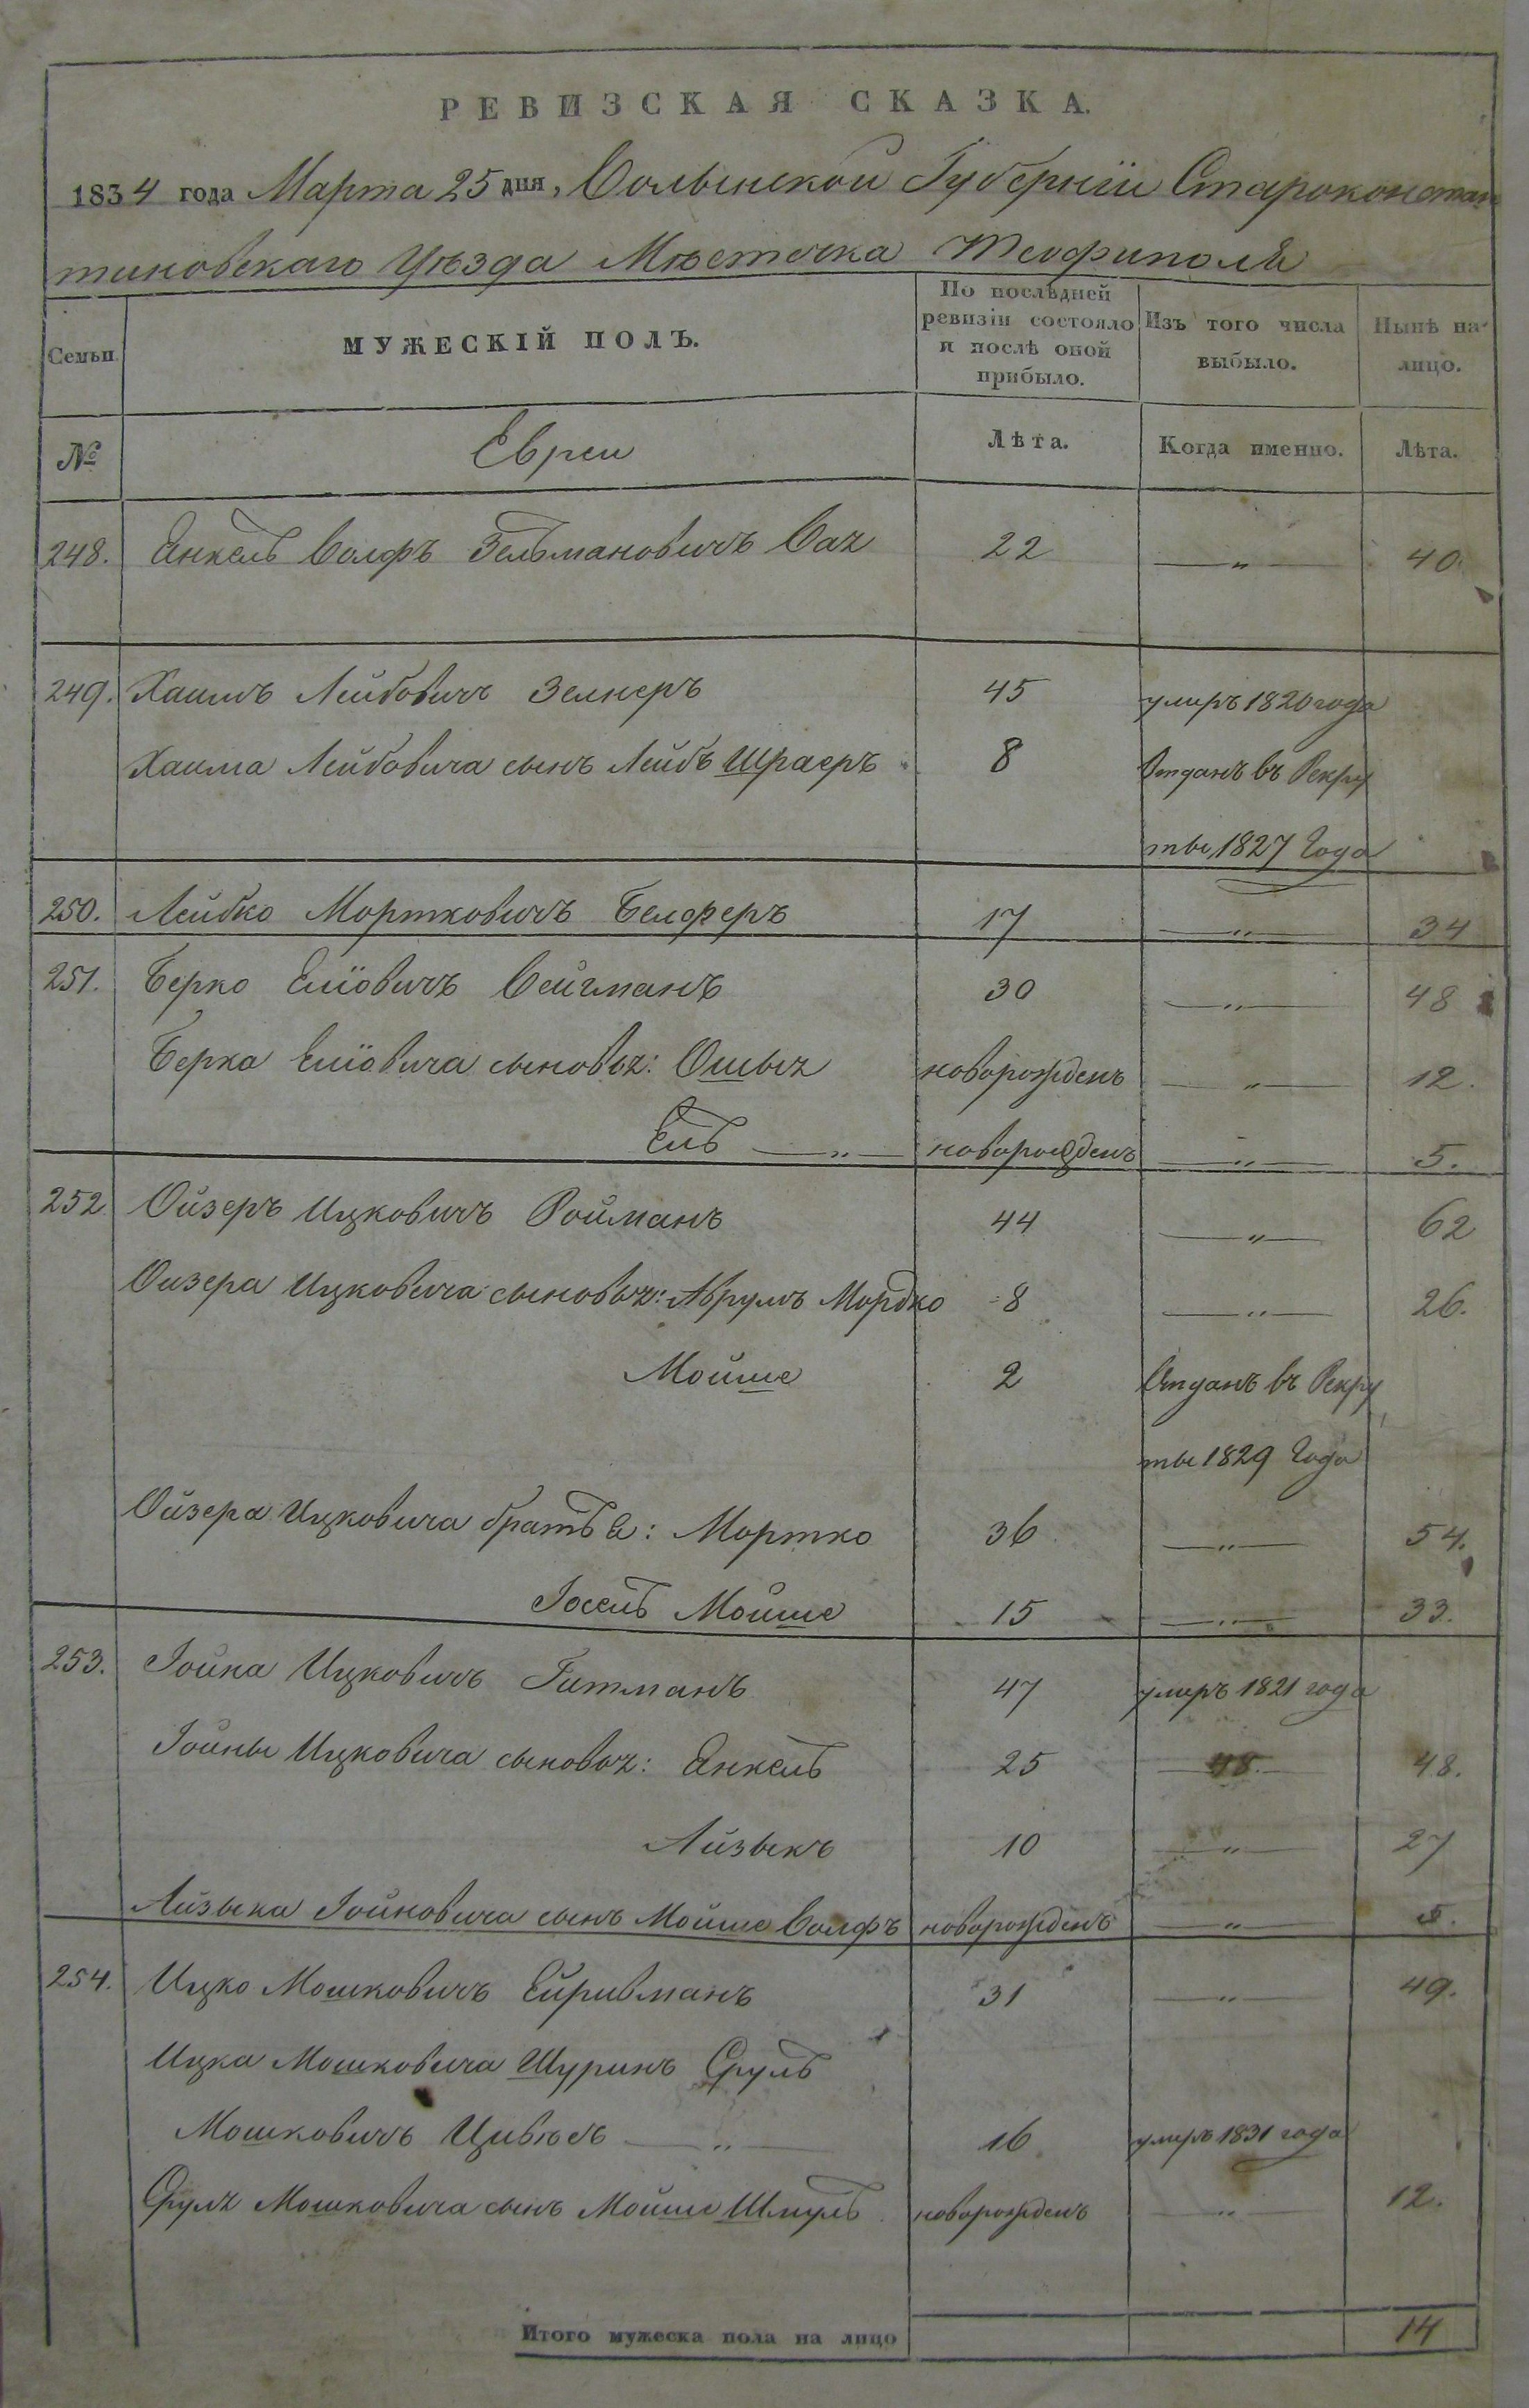 РЕВИЗСКАЯ СКАЗКА.
1834 года Марта 25 дня, Волынской Губернїи Староконстан
тиновскаго Уѣзда Мѣстечка Теофиполя
Семьи
МУЖЕСКІЙ ПОЛЪ.
По послѣдней ревизіи состояло и послѣ оной прибыло.
Изъ того числа выбыло.
Нынѣ на-лицо.
№ Евреи Лѣта. Когда именно. Лѣта.
248. Янкель Волфъ Зельмановичъ Вах 22 — „ — 40.
249. Хаимъ Лейбовичъ Зелнеръ 45 умиръ 1820 года
Хаима Лейбовича сынъ Лейбъ Шраеръ 8 Отданъ въ Рекру
ты 1827 Года
250. Лейбко Мортковичъ Белферъ 17 — „ — 34
251. Берко Елїовичъ Вейгманъ 30 — „ — 48
Берка Елїовича сыновьх: Ошых новорожденъ — „ — 12.
Ель — „ — новорожденъ — „ — 5.
252 Ойзеръ Ицковичъ Ройманъ 44 — „ — 62
Ойзера Ицковича сыновьх: Аврумъ Мордко 8 — „ — 26.
Мойше 2 Отданъ въ Рекру
ты 1829 Года
Ойзера Ицковича братья: Мортко 36 — „ — 54.
Іосель Мойше 15 — „ — 33.
253. Іойна Ицковичъ Гитманъ 47 умиръ 1821 года
Іойны Ицковича сыновьх: Янкель 25 48. 48.
Айзыкъ 10 — „ — 27
Айзыка Іойновича сынъ Мойше Волфъ новорожденъ — „ — 5.
254. Ицко Мошковичъ 31 — „ — 49.
Ицка Мошковича Шуринъ Сруль
Мошковичъ Цивюсъ — „ — 16 умиръ 1831 года
Срулх Мошковича сынъ Мойше Шмуль новорожденъ — „ — 12.
Итого мужеска пола на лицо 14